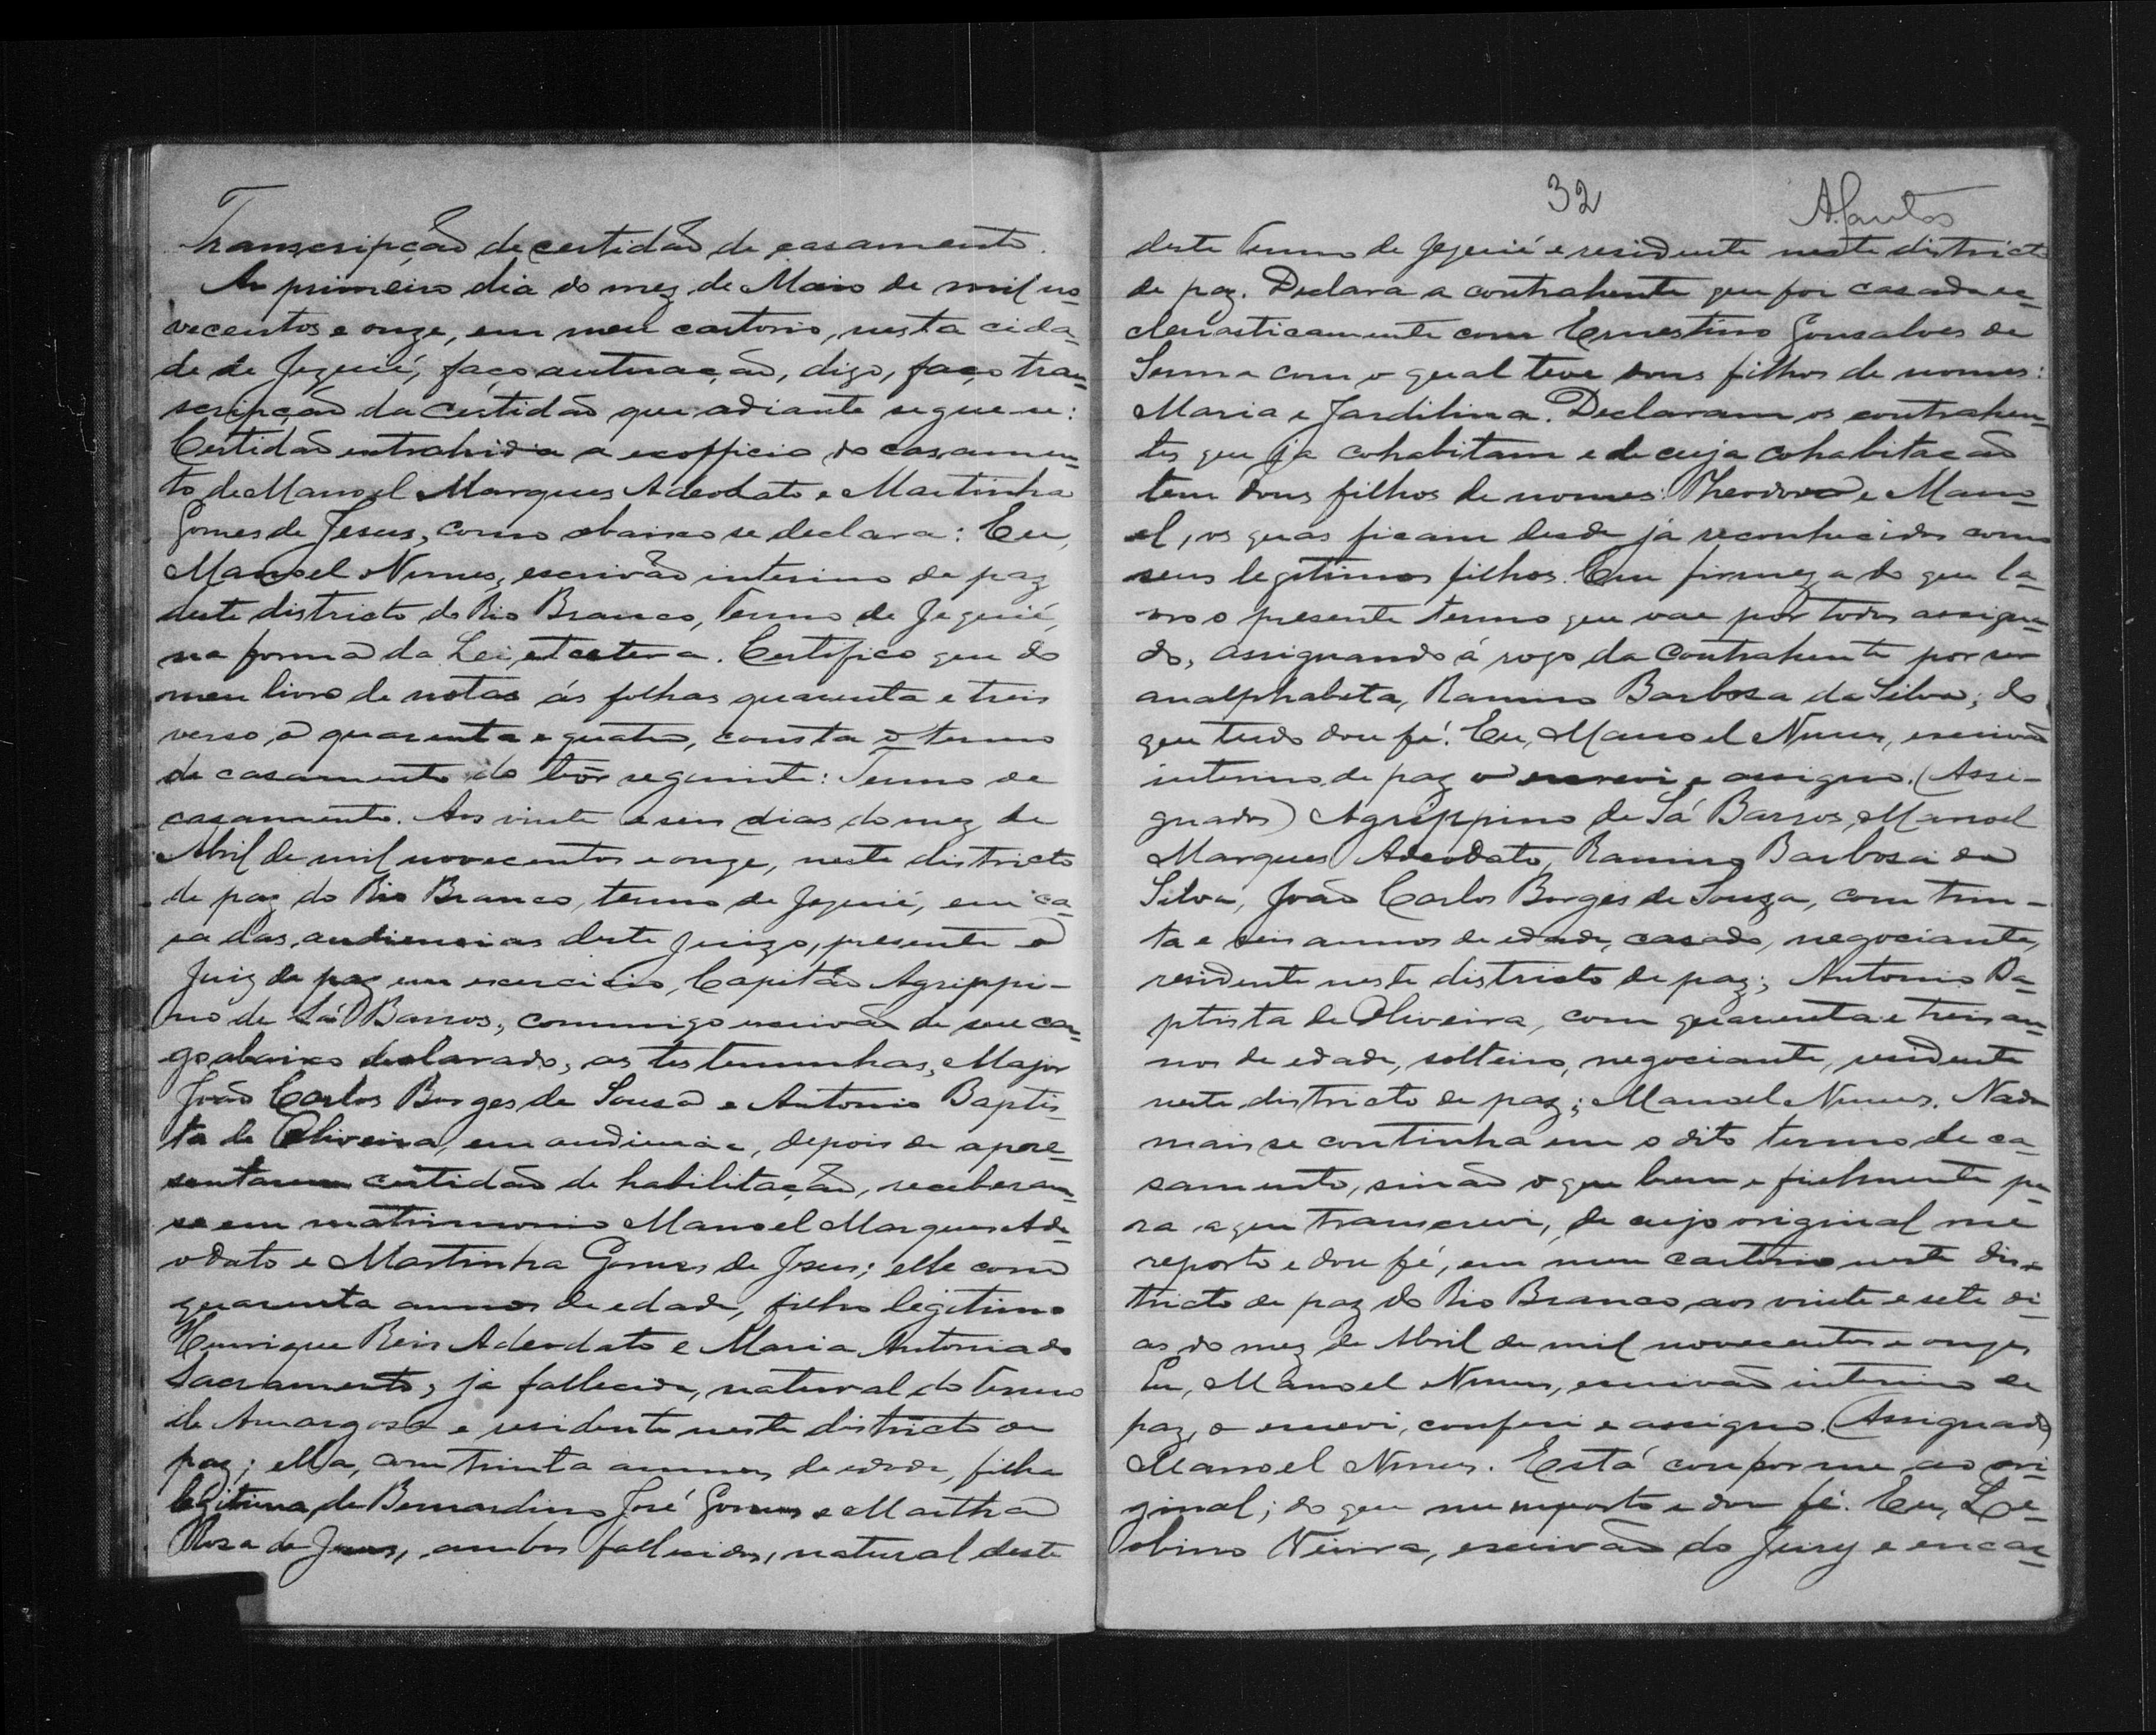 Transcripção de certidão de casamento.
Ao primeiro dia do mez de Maio de mil no-
vecentos e onze, em meu cartorio, nesta cida-
de de Jequié, faço autuação, digo, faço tran-
scripção da certidão que adiante segue-se:
Certidão extrahida a exofficio do casamen-
to de Manoel Marques Adeodato e Martinha
Gomes de Jesus, como abaixo se declara: Eu,
Manoel Nunes, escrivão interino de paz
deste districto do Rio Branco, Termo de Jequié,
na forma da Lei, etcetera. Certifico que do
meu livro de notas ás folhas quarenta e treis
verso a quarenta e quatro, consta o termo
de casamento do teôr seguinte: Termo de
casamento. Aos vinte e seis dias do mez de
Abril de mil novecentos e onze, neste districto
de paz do Rio Branco, termo de Jequié, em ca-
sa das audiencias deste Juizo, presente o
Juiz de paz em exercicio, Capitão Agrippi-
no de Sá Barros, commigo escrivão de seu car-
go abaixo declarado, as testemunhas, Major
João Carlos Borges de Sousa e Antonio Baptis-
ta de Oliveira, em audiencia, depois de apre-
sentarem certidão de habilitação, receberam-
se em matrimonio Manoel Marques Ade-
odato e Martinha Gomes de Jesus; elle com
quarenta annos de edade, filho legitimo
Henrique Reis Adeodato e Maria Antonia do
Sacramento, já fallecida, natural do termo
de Amargosa e residente neste districto de
paz; ella, com trinta annos de edade, filha
legitima de Bernardino José Gomes e Martha
Rosa de Jesus, ambos fallecidos, natural deste
32
A. Santos
deste Termo de Jequié e residente neste districto
de paz. Declara a contrahente que foi casada ec-
clesiasticamente com Ernestino Gonsalves de
Senna com o qual teve dous filhos de nomes:
Maria e Jardilina. Declararam os contrahen-
tes que já cohabitam e de cuja cohabitação
tem dous filhos de nomes: Theodoro e Mano-
el, os quas ficam desde já reconhecidos como
seus legitimos filhos. Em firmeza do que la-
vro o presente termo que vae por todos assigna-
do, assignando á rogo da contrahente por ser
analphabeta, Ramiro Barbosa da Silva; do
que tudo dou fé. Eu, Manoel Nunes, escrivão
interino de paz o escrevi e assigno. (Assi-
gnados) Agrippino de Sá Barros, Manoel
Marques Adeodato, Ramiro Barbosa da
Silva, João Carlos Borges de Souza, com trin-
ta e seis annos de edade, casado, negociante,
residente neste districto de paz; Antonio Ba-
ptista de Oliveira, com quarenta e treis an-
nos de edade, solteiro, negociante, residente
neste districto de paz; Manoel Nunes. Nada
mais se continha em o dito termo de ca-
samento, sinão o que bem e fielmente pa-
ra aqui transcrevi, de cujo original me
reporto e dou fé, em meu cartorio neste dis-
tricto de paz do Rio Branco aos vinte e sete di-
as do mez de Abril de mil novecentos e onze.
Eu, Manoel Nunes, escrivão interino de
paz, o escrevi, conferi e assigno. (Assignado)
Manoel Nunes. Está conforme ao ori-
ginal; do que me reporto e dou fé. Eu, Le-
obino Neiva, escrivão do Jury e encar-